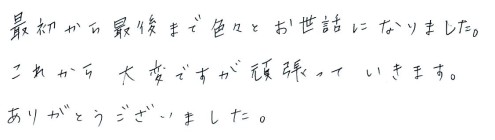 最初から最後まで色々とお世話になりました。
これから大変ですが頑張っていきます。
ありがとうございました。